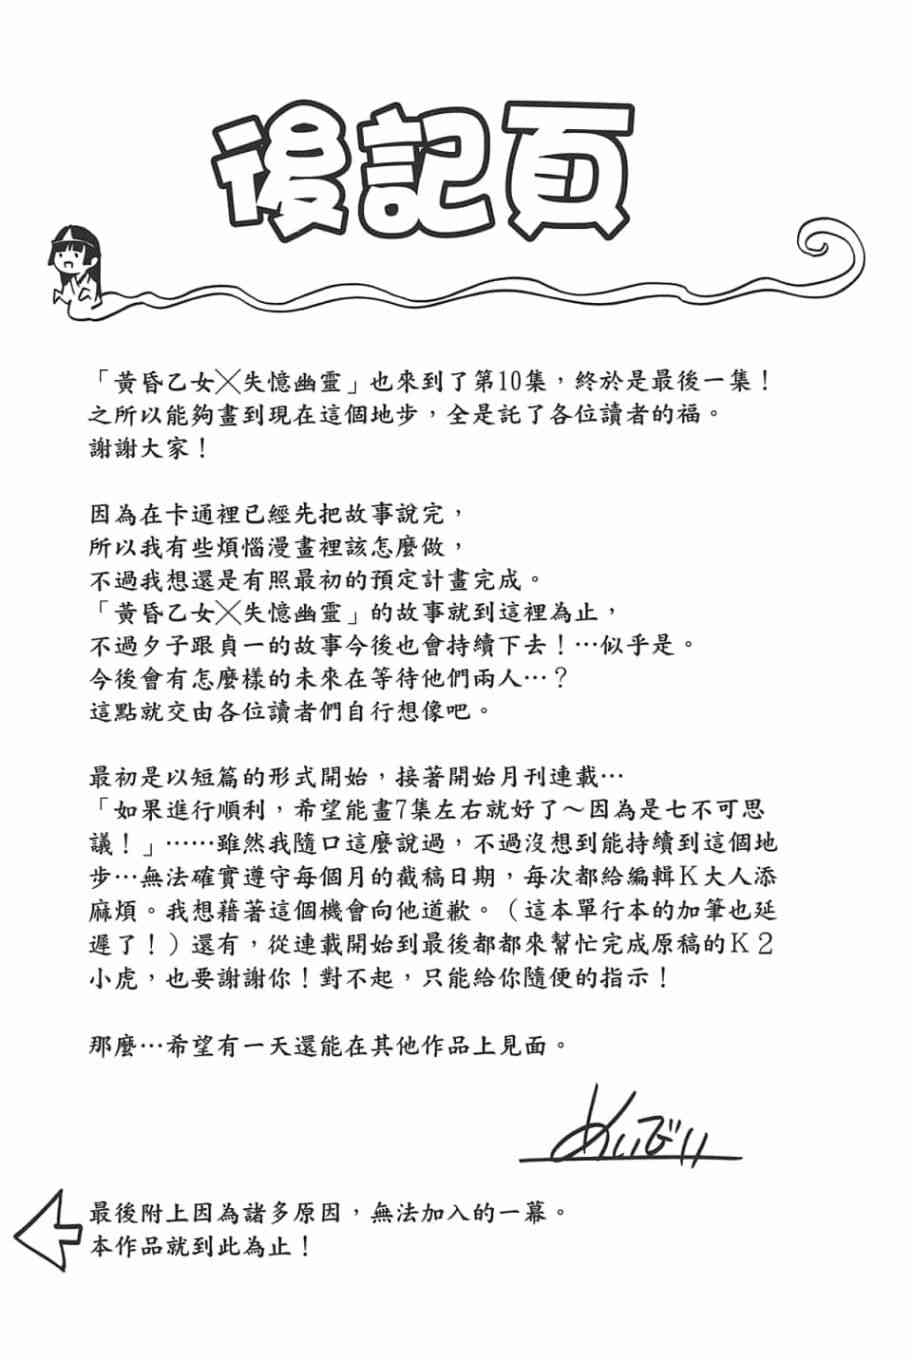 後記頁
「黃昏乙女╳失憶幽靈」也來到了第10集，終於是最後一集！
之所以能夠畫到現在這個地步，全是託了各位讀者的福。
謝謝大家！
因為在卡通裡已經先把故事說完，
所以我有些煩惱漫畫裡該怎麼做，
不過我想還是有照最初的預定計畫完成。
「黃昏乙女╳失憶幽靈」的故事就到這裡為止，
不過夕子跟貞一的故事今後也會持續下去！…似乎是。
今後會有怎麼樣的未來在等待他們兩人…？
這點就交由各位讀者們自行想像吧。
最初是以短篇的形式開始，接著開始月刊連載…
「如果進行順利，希望能畫7集左右就好了～因為是七不可思
議！」……雖然我隨口這麼說過，不過沒想到能持續到這個地
步…無法確實遵守每個月的截稿日期，每次都給編輯Ｋ大人添
麻煩。我想藉著這個機會向他道歉。（這本單行本的加筆也延
遲了！）還有，從連載開始到最後都都來幫忙完成原稿的Ｋ２
小虎，也要謝謝你！對不起，只能給你隨便的指示！
那麼…希望有一天還能在其他作品上見面。
めいびい
最後附上因為諸多原因，無法加入的一幕。
本作品就到此為止！